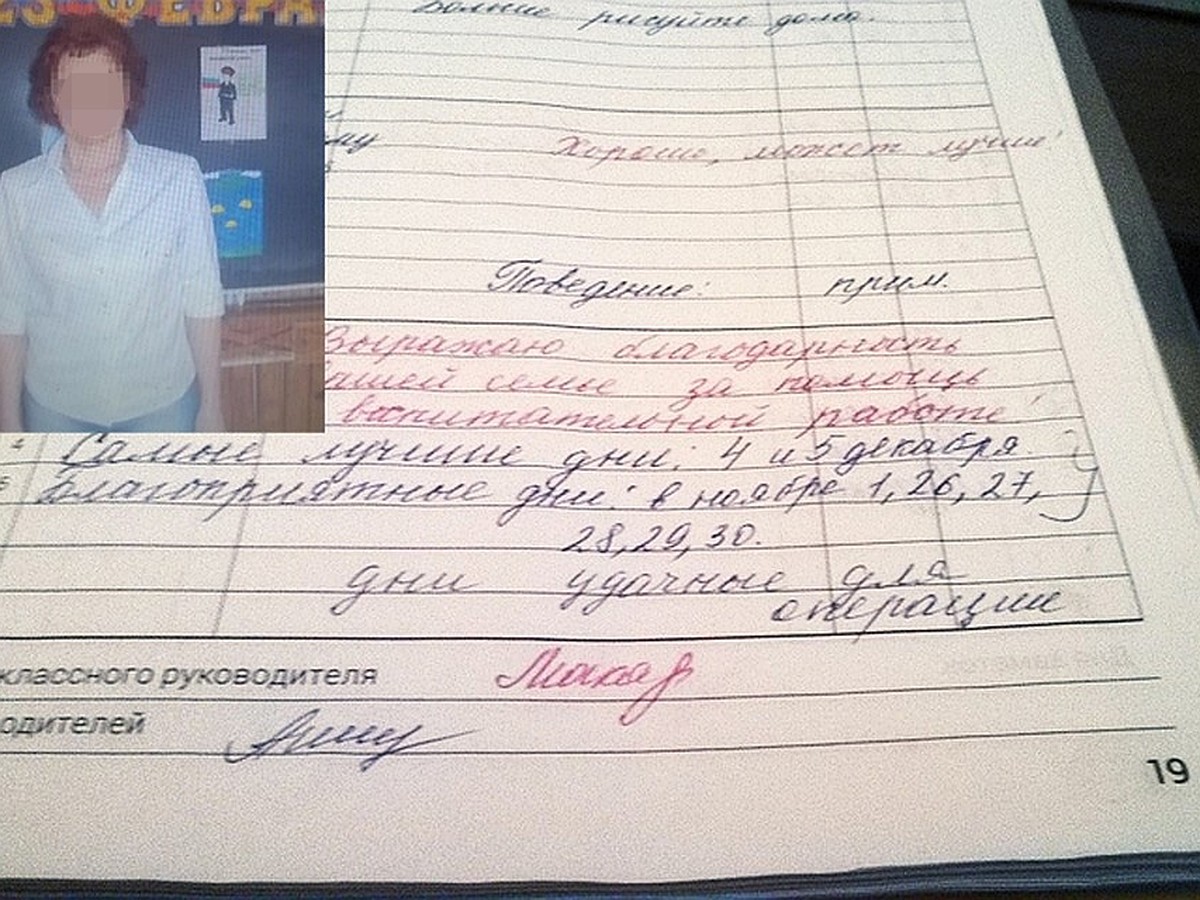 23 ФЕВРА
Больше рисуйте дома.
му
Хорошо, может лучше!
Поведение: прим.
Выражаю благодарность
ашей семье за помощь
воспитательной работе!
Самые лучшие дни: 4 и 5 декабря.
Благоприятные дни: в ноябре 1, 26, 27,
28, 29, 30.
дни удачные для
операции
классного руководителя Макар
одителей
19